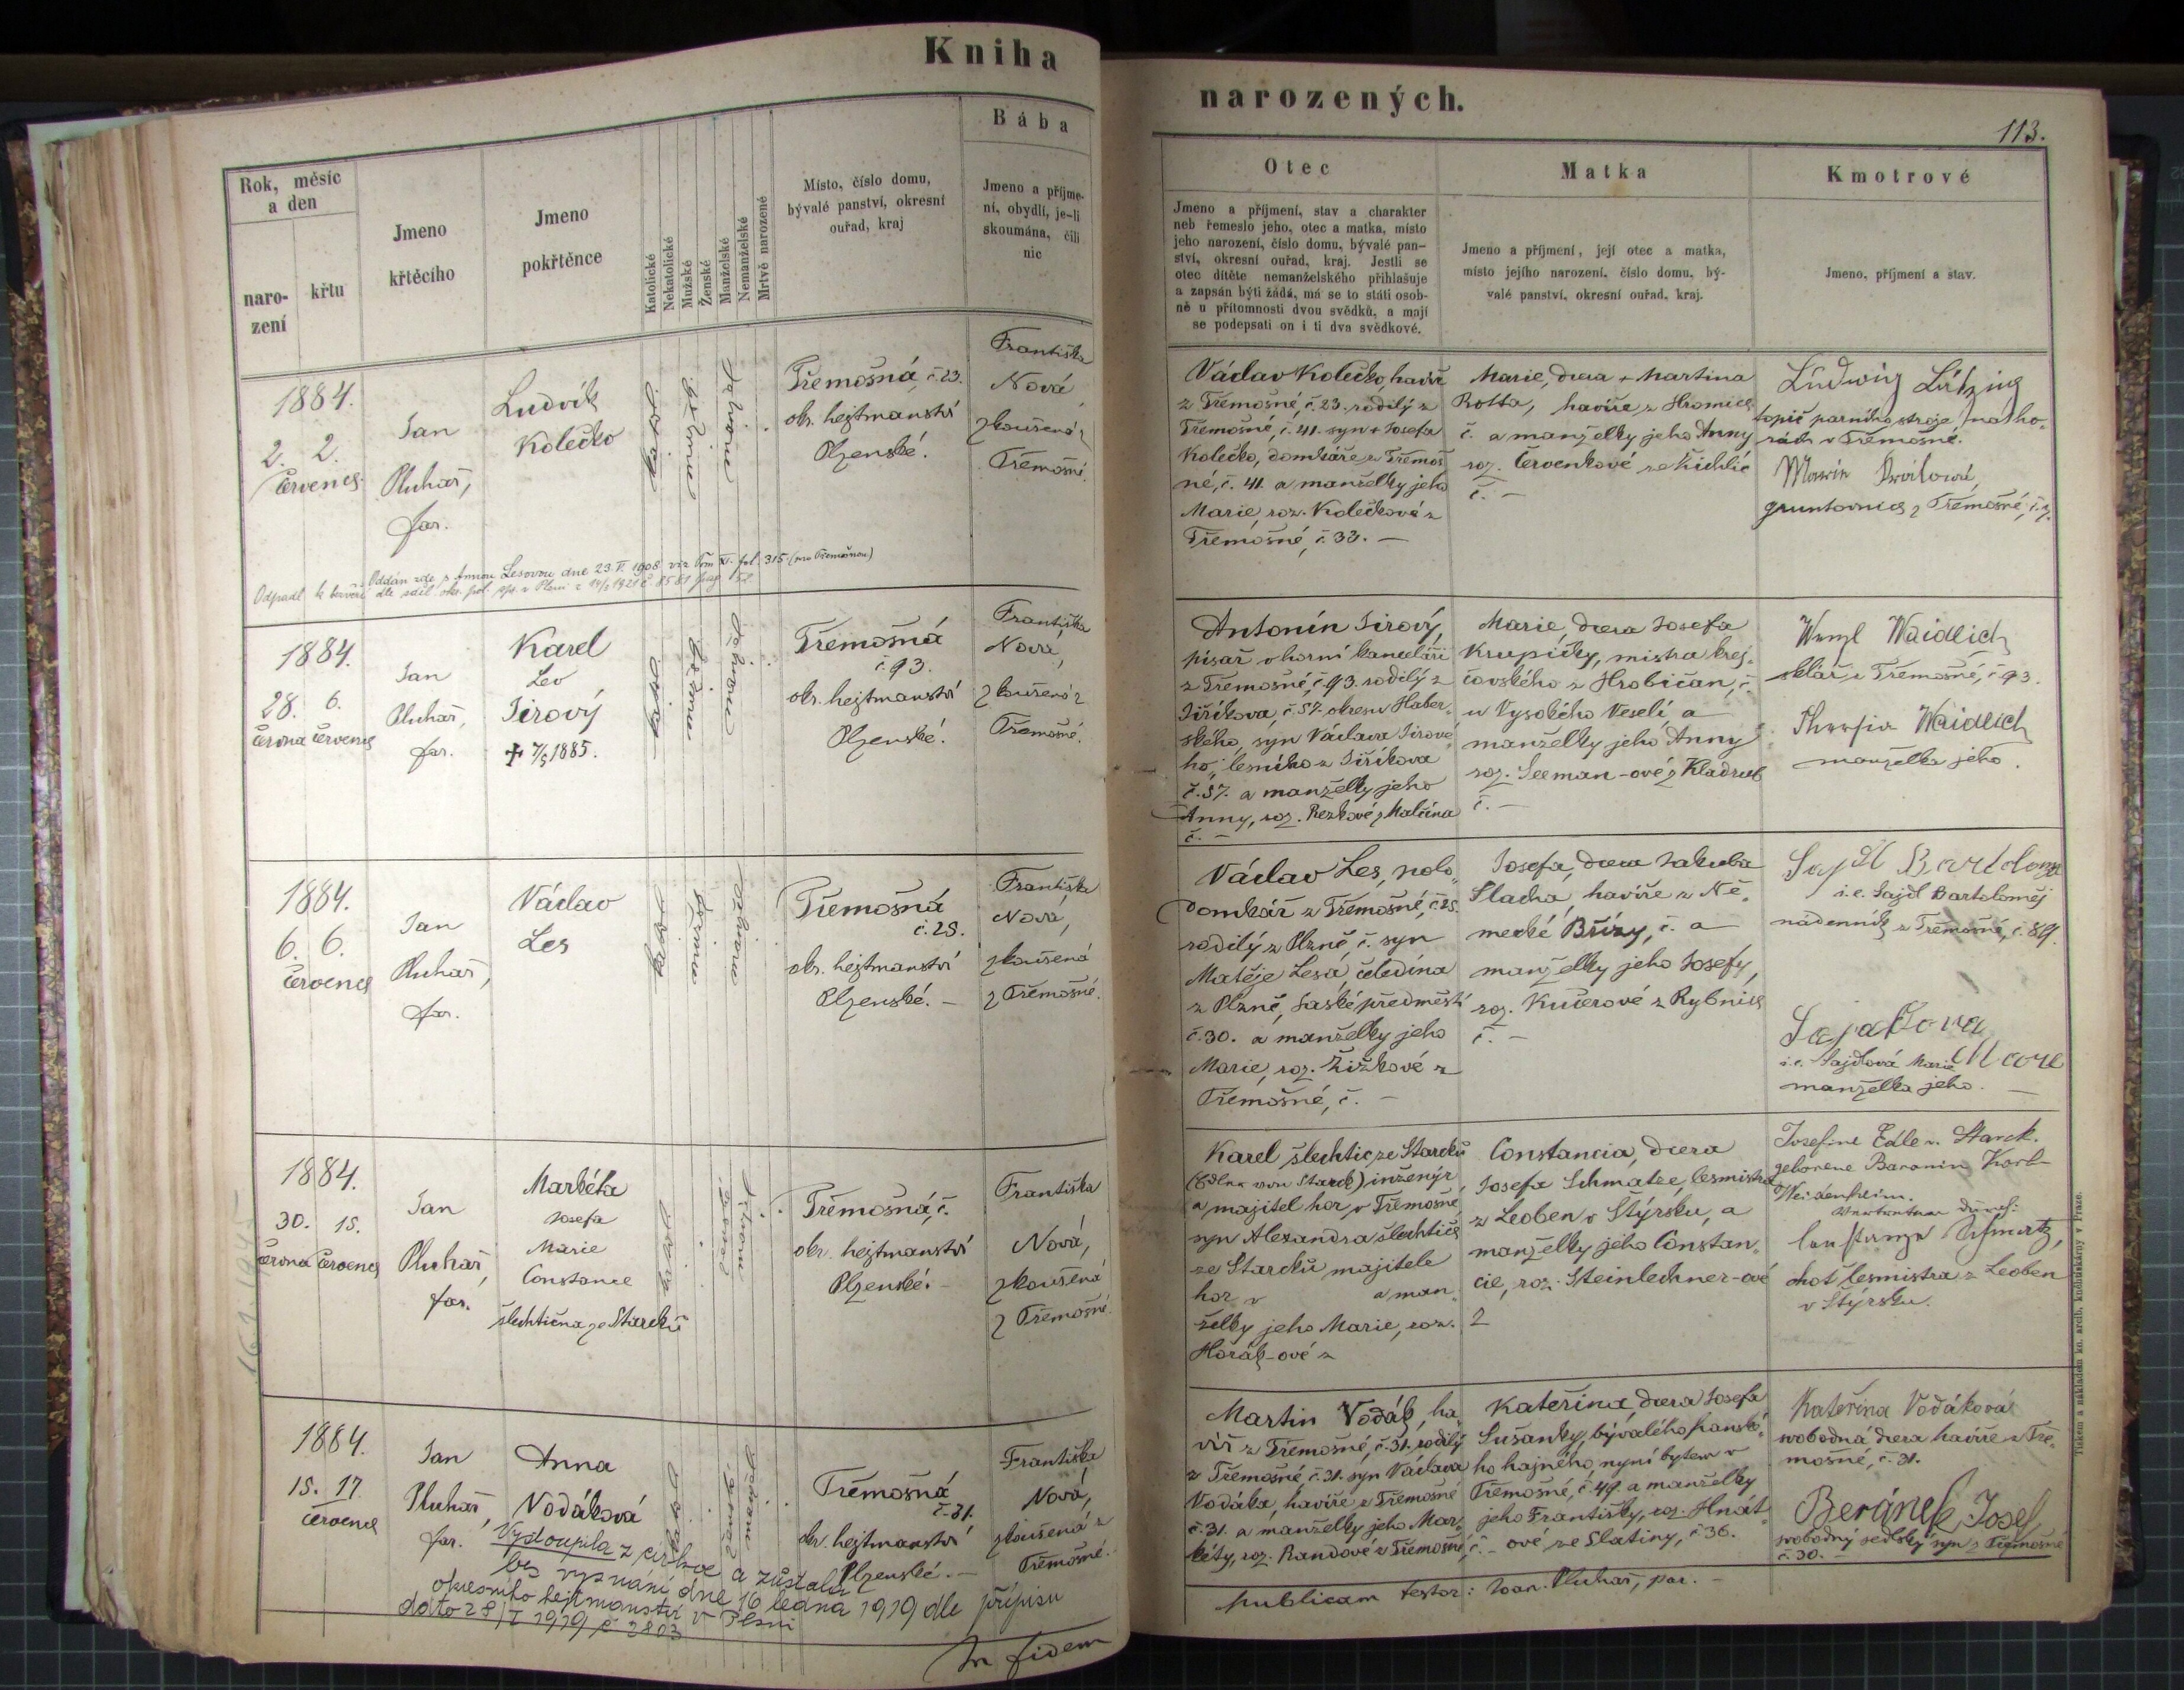 Kniha
Rok, měsíc
a den
naro-
zení
křtu
Jmeno
křtěcího
Jmeno
pokřtěnce
Katolické
Nekatolické
Mužské
Ženské
Manželské
Nemanželské
Mrtvě narozené
Místo, číslo domu,
bývalé panství, okresní
ouřad, kraj
Bába
Jmeno a příjme-
ní, obydlí, je-li
skoumána, čili
nic
1884.
2. 2.
Července
Jan
Pluhař,
far.
Ludvík
Kolečko
Třemošná č. 23.
okr. hejtmanství
Plzenské.
Františka
Nová
zkoušená z
Třemošné.
Oddán zde s Annou Lesovou dne 23. V. 1908 viz Tom XI. fol. 315 (pro Třemošnou)
1884.
28. 6.
Června Července
Jan
Pluhař,
far.
Karel
Lev
Jirový
✝ 7/5 1885.
Třemošná
č. 93.
okr. hejtmanství
Plzenské.
Františka
Nová,
zkoušená z
Třemošné.
1884.
6. 6.
Července
Jan
Pluhař,
far.
Václav
Les
Třemošná
č. 25.
okr. hejtmanství
Plzenské. –
Františka
Nová,
zkoušená
z Třemošné.
1884.
30. 15.
Června Července
Jan
Pluhař,
far.
Markéta
Josefa
Marie
Constance
šlechtična ze Starcků
Třemošná, č.
okr. hejtmanství
Plzenské. –
Františka
Nová,
zkoušená
z Třemošné.
1884.
15. 17.
Července
Jan
Pluhař,
far.
Anna
Vodáková
Třemošná
č. 31.
okr. hejtmanství
Plzenské. –
Františka
Nová,
zkoušená z
Třemošné.
Vystoupila z církve a zůstala
bes vyznání dne 16 ledna 1919 dle přípisu
okresního hejtmanství v Plzni
dato 28/I 1919 č 2803
In fidem
narozených.
113.
Otec
Jmeno a příjmení, stav a charakter
neb řemeslo jeho, otec a matka, místo
jeho narození, číslo domu, bývalé pan-
ství, okresní ouřad, kraj. Jestli se
otec dítěte nemanželského přihlašuje
a zapsán býti žádá, má se to státi osob-
ně u přítomnosti dvou svědků, a mají
se podepsati on i ti dva svědkové.
Matka
Jmeno a příjmení, její otec a matka,
místo jejího narození, číslo domu, bý-
valé panství, okresní ouřad, kraj.
Kmotrové
Jmeno, příjmení a stav.
Václav Kolečko, havíř
z Třemošné, č. 23. rodilý z
Třemošné, č. 41. syn + Josefa
Kolečko, domkáře z Třemoš
né, č. 41. a manželky jeho
Marie, roz. Kolečkové z
Třemošné, č. 33. –
Marie, dcera + Martina
Rotta, havíře z Hromice
č. a manželky jeho Anny
roz. Červenkové
č. –
Ludwig
topič parního stroje na ho-
rách v Třemošné.
gruntovnice z Třemošné, č. 7.
Antonín Jirový,
písař v horní kanceláři
z Třemošné, č. 93. rodilý z
Jiříkova, č. 57. okresu Haber-
ského, syn Václava Jirové-
ho, lesního z Jiříkova
č. 57. a manželky jeho
Anny, roz. Rezkové z Malčína
č. –
Marie, dcera Josefa
Krupičky, mistra krej-
čovského z Hrobičan, č.
u Vysokého Veselí, a
manželky jeho Anny
roz. Seeman-ové z Kladrub
č. –
Wenzl Waidlich
sklář z Třemošné, č 93.
Theresia Waidlich
manželka jeho.
Václav Les, polo-
domkář z Třemošné, č. 25.
rodilý z Plzně, č. syn
Matěje Lesa, čeledína
z Plzně, Saské předměstí
č. 30. a manželky jeho
Marie, roz. Žižkové z
Třemošné, č. –
Josefa, dcera Jakuba
Sladka, havíře z Ně-
mecké Břízy, č. a
manželky jeho Josefy,
roz. Kučerové z Rybnice
č. –
Sajdl
i. e. Sajdl Bartoloměj
nádenník z Třemošné, č. 89.
i. e. Sajdlová Marie
manželka jeho. –
Karel šlechtic ze Starcků
(Edler von Starck) inženýr
a majitel hor v Třemošné,
syn Alexandra šlechtice
ze Starcků majitele
hor v a man-
želky jeho Marie, roz.
Horák-ové z
Constancia, dcera
Josefa Schmatze, lesmistra
z Leoben v Štýrsku, a
manželky jeho Constan-
cie, roz. Steinlechner-ové
z
Josefine Edle v. Starck.
geborene Baronin Korb
Weidenheim.
choť lesmistra z Leoben
v Štýrsku.
Martin Vodák, ha-
víř z Třemošné, č. 31. rodilý
z Třemošné č. 31. syn Václava
Vodáka, havíře z Třemošné
č. 31. a manželky jeho Mar-
kéty, roz. Randové z Třemošné, č. –
Kateřina, dcera Josefa
Sušanky, bývalého panské-
ho hajného, nyní bytem v
Třemošné, č. 49. a manželky
jeho Františky, roz. Hnát-
ové ze Slatiny, č 36.
Kateřina Vodáková
svobodná dcera havíře z Tře-
mošné, č. 31.
Beránek Josef,
svobodný sedlský syn z Třemošné
č. 30. –
publicam testor: Joan. Pluhař, par. –
Tiskem a nákladem kn. arcib. knihtiskárny v Praze.